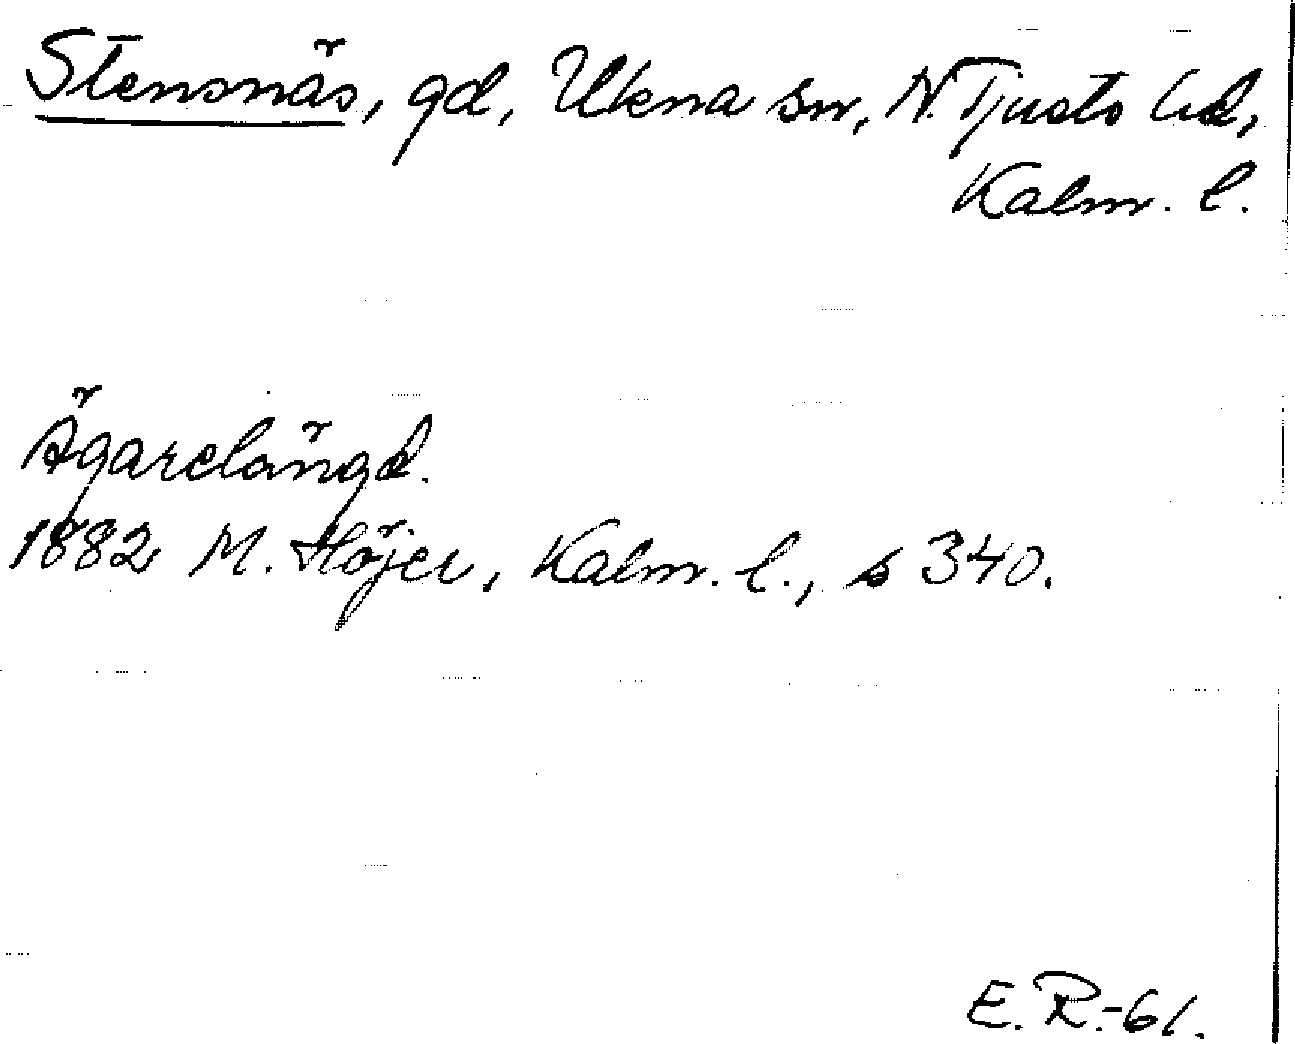 Stensnäs, gd, Ukna sn, N. Tjusts hd,
Kalm. l.
Ägarelängd.
1882 M. Höjer, Kalm. l., s 340.
E. R.-61.